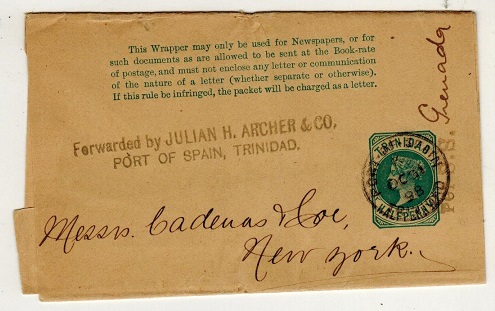 This Wrapper may only be used for Newspapers, or for
such documents as are allowed to be sent at the Book-rate
of postage, and must not enclose any letter or communication
of the nature of a letter (whether separate or otherwise).
If this rule be infringed, the packet will be charged as a letter.
Forwarded by JULIAN H. ARCHER & CO.
PORT OF SPAIN, TRINIDAD.
Grenada
TRINIDAD
HALFPENNY
Messrs. Cadenas & Coe,
New York.